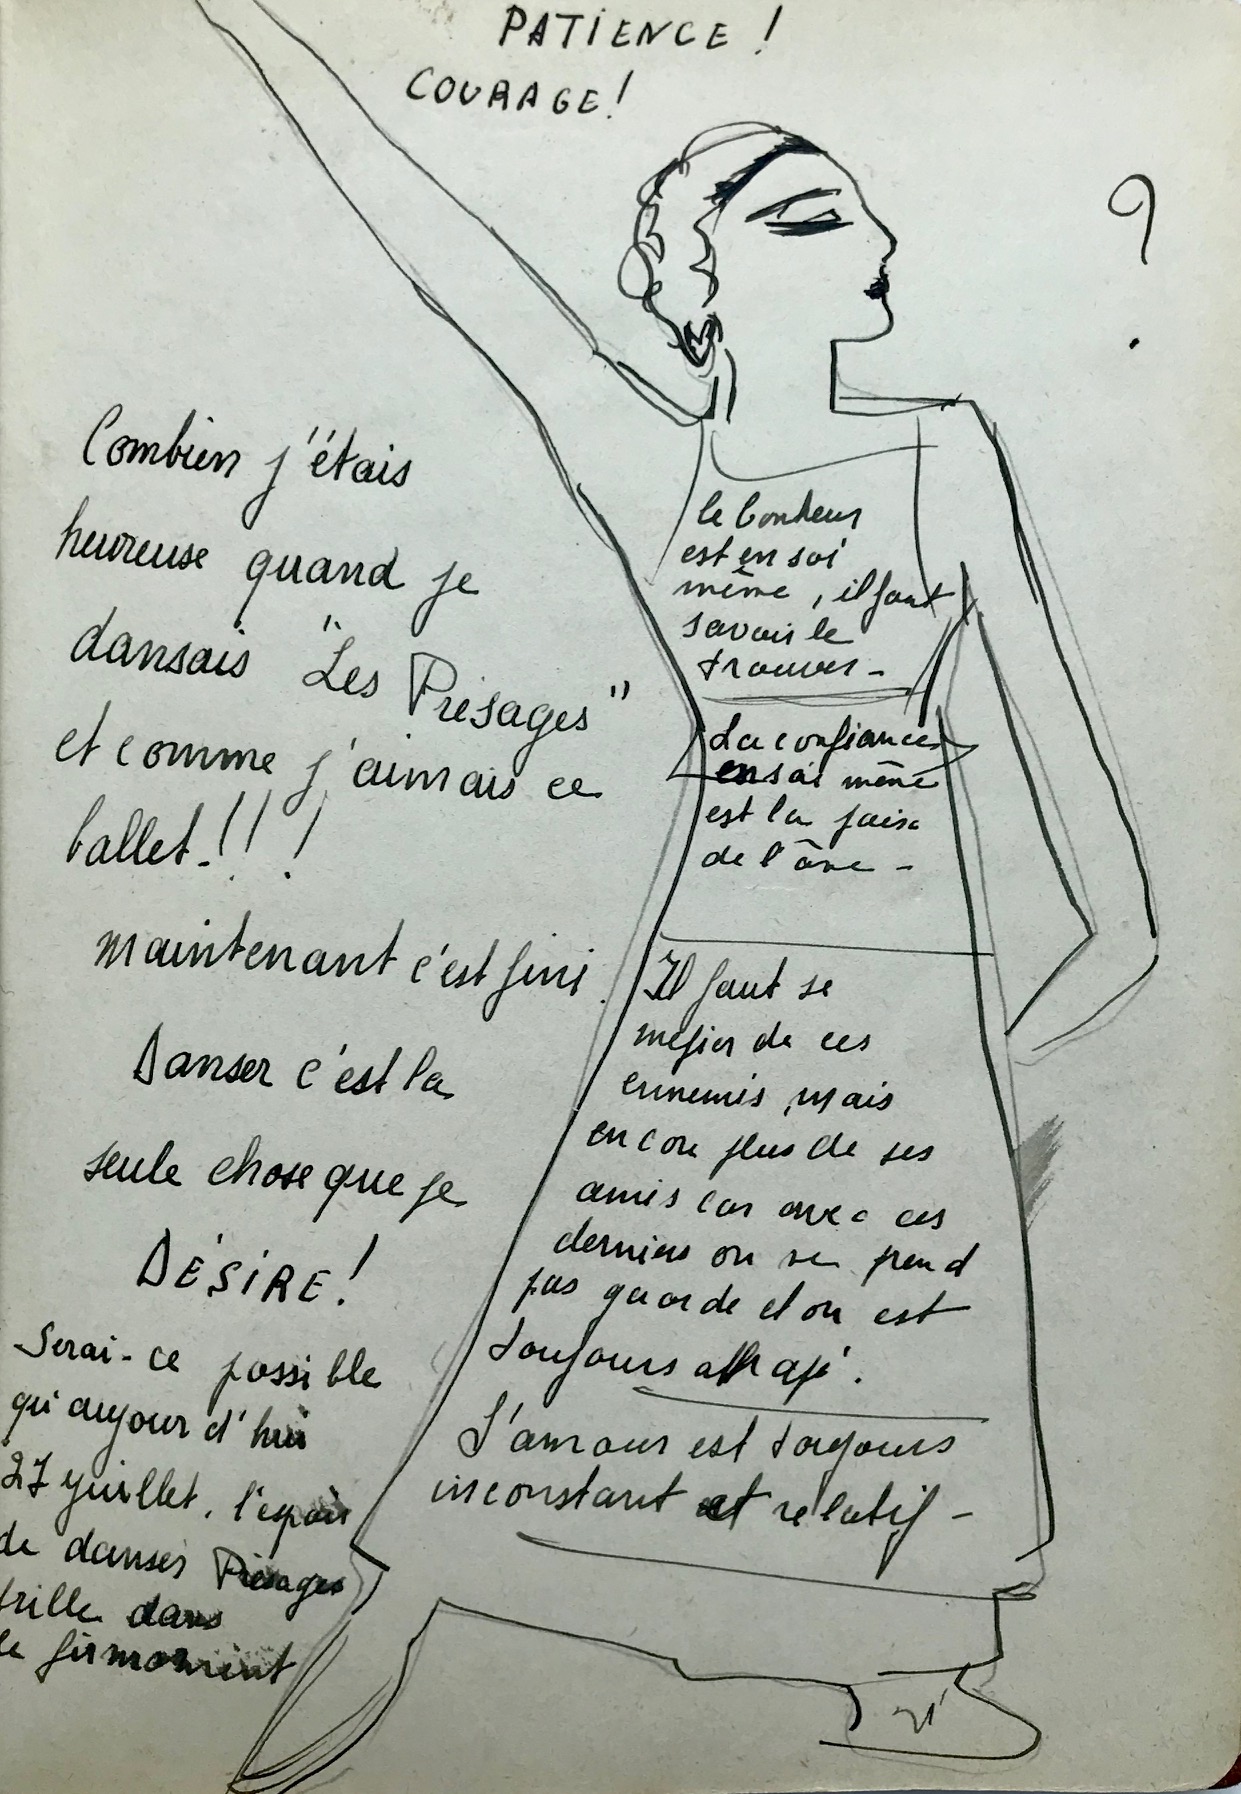 PATIENCE !
COURAGE !
?
Combien j'étais
heureuse quand je
dansais "Les Présages"
et comme j'aimais ce
ballet.!! !
maintenant c'est fini.
Danser c'est la
seule chose que je
DÉSIRE !
Serai-ce possible
qu'aujour d'hui
27 juillet, l'espoir
de danser Présages
brille dans
le firmament
le bonheur
est en soi
même, il faut
savoir le
trouver -
La confiance
en soi même
est la
de l'âme -
Il faut se
mefier de ces
ennemis, mais
encore plus de ses
amis car avec ces
derniers on ne prend
pas guarde et on est
toujours
L'amour est toujours
inconstant et relatif -